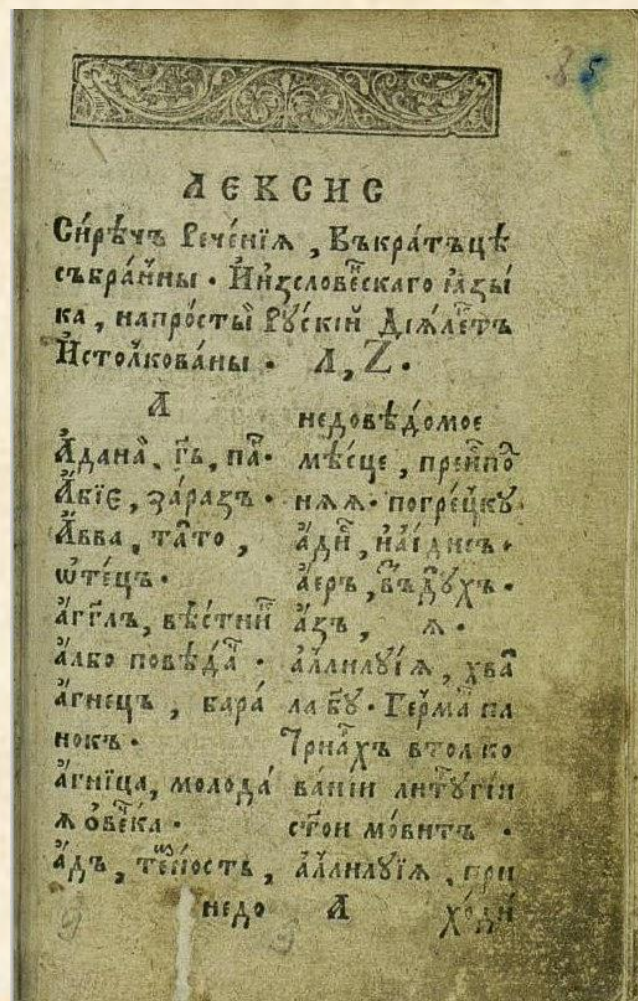 ЛЕКСИС
Си́рѣчъ Рече́нїѧ , Въкра́тъцѣ
събра́нны . Ѝзсловѐнскаго ꙗзы́
ка , напро́стый Рꙋ́скій Дїѧ́лектъ
Истолкова́ны . А , Z .
А
А́дана̀ , гь , па .
А́бїє , за́разъ .
А́вва , та́то ,
ѿте́цъ .
а́гг҃лъ , вѣ́стни
а́лбо повѣ́да .
а́гнецъ , бара́
нокъ .
а́гнїца , молода́
ѧ ове́чка .
а́дъ , те́мность ,
недовѣ́домое
мѣ́сце , преиспо
нѧѧ . погре́цкꙋ
а́ди , на́идисъ .
а́еръ , въдꙋхъ .
а́зъ , ѧ .
аллилꙋ́їѧ , хва
ла бꙋ . Ге́рма па
трїа́рхъ втолко
ва́нїи литꙋргїи
стои мо́витъ .
аллилꙋїѧ , при
недо А хо́ди